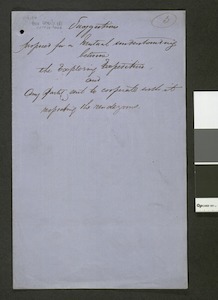 Suggestions
proposed for a mutual understanding
between
the Exploring Expedition
and
Any Party sent to cooperate with it
respecting the rendezvous.